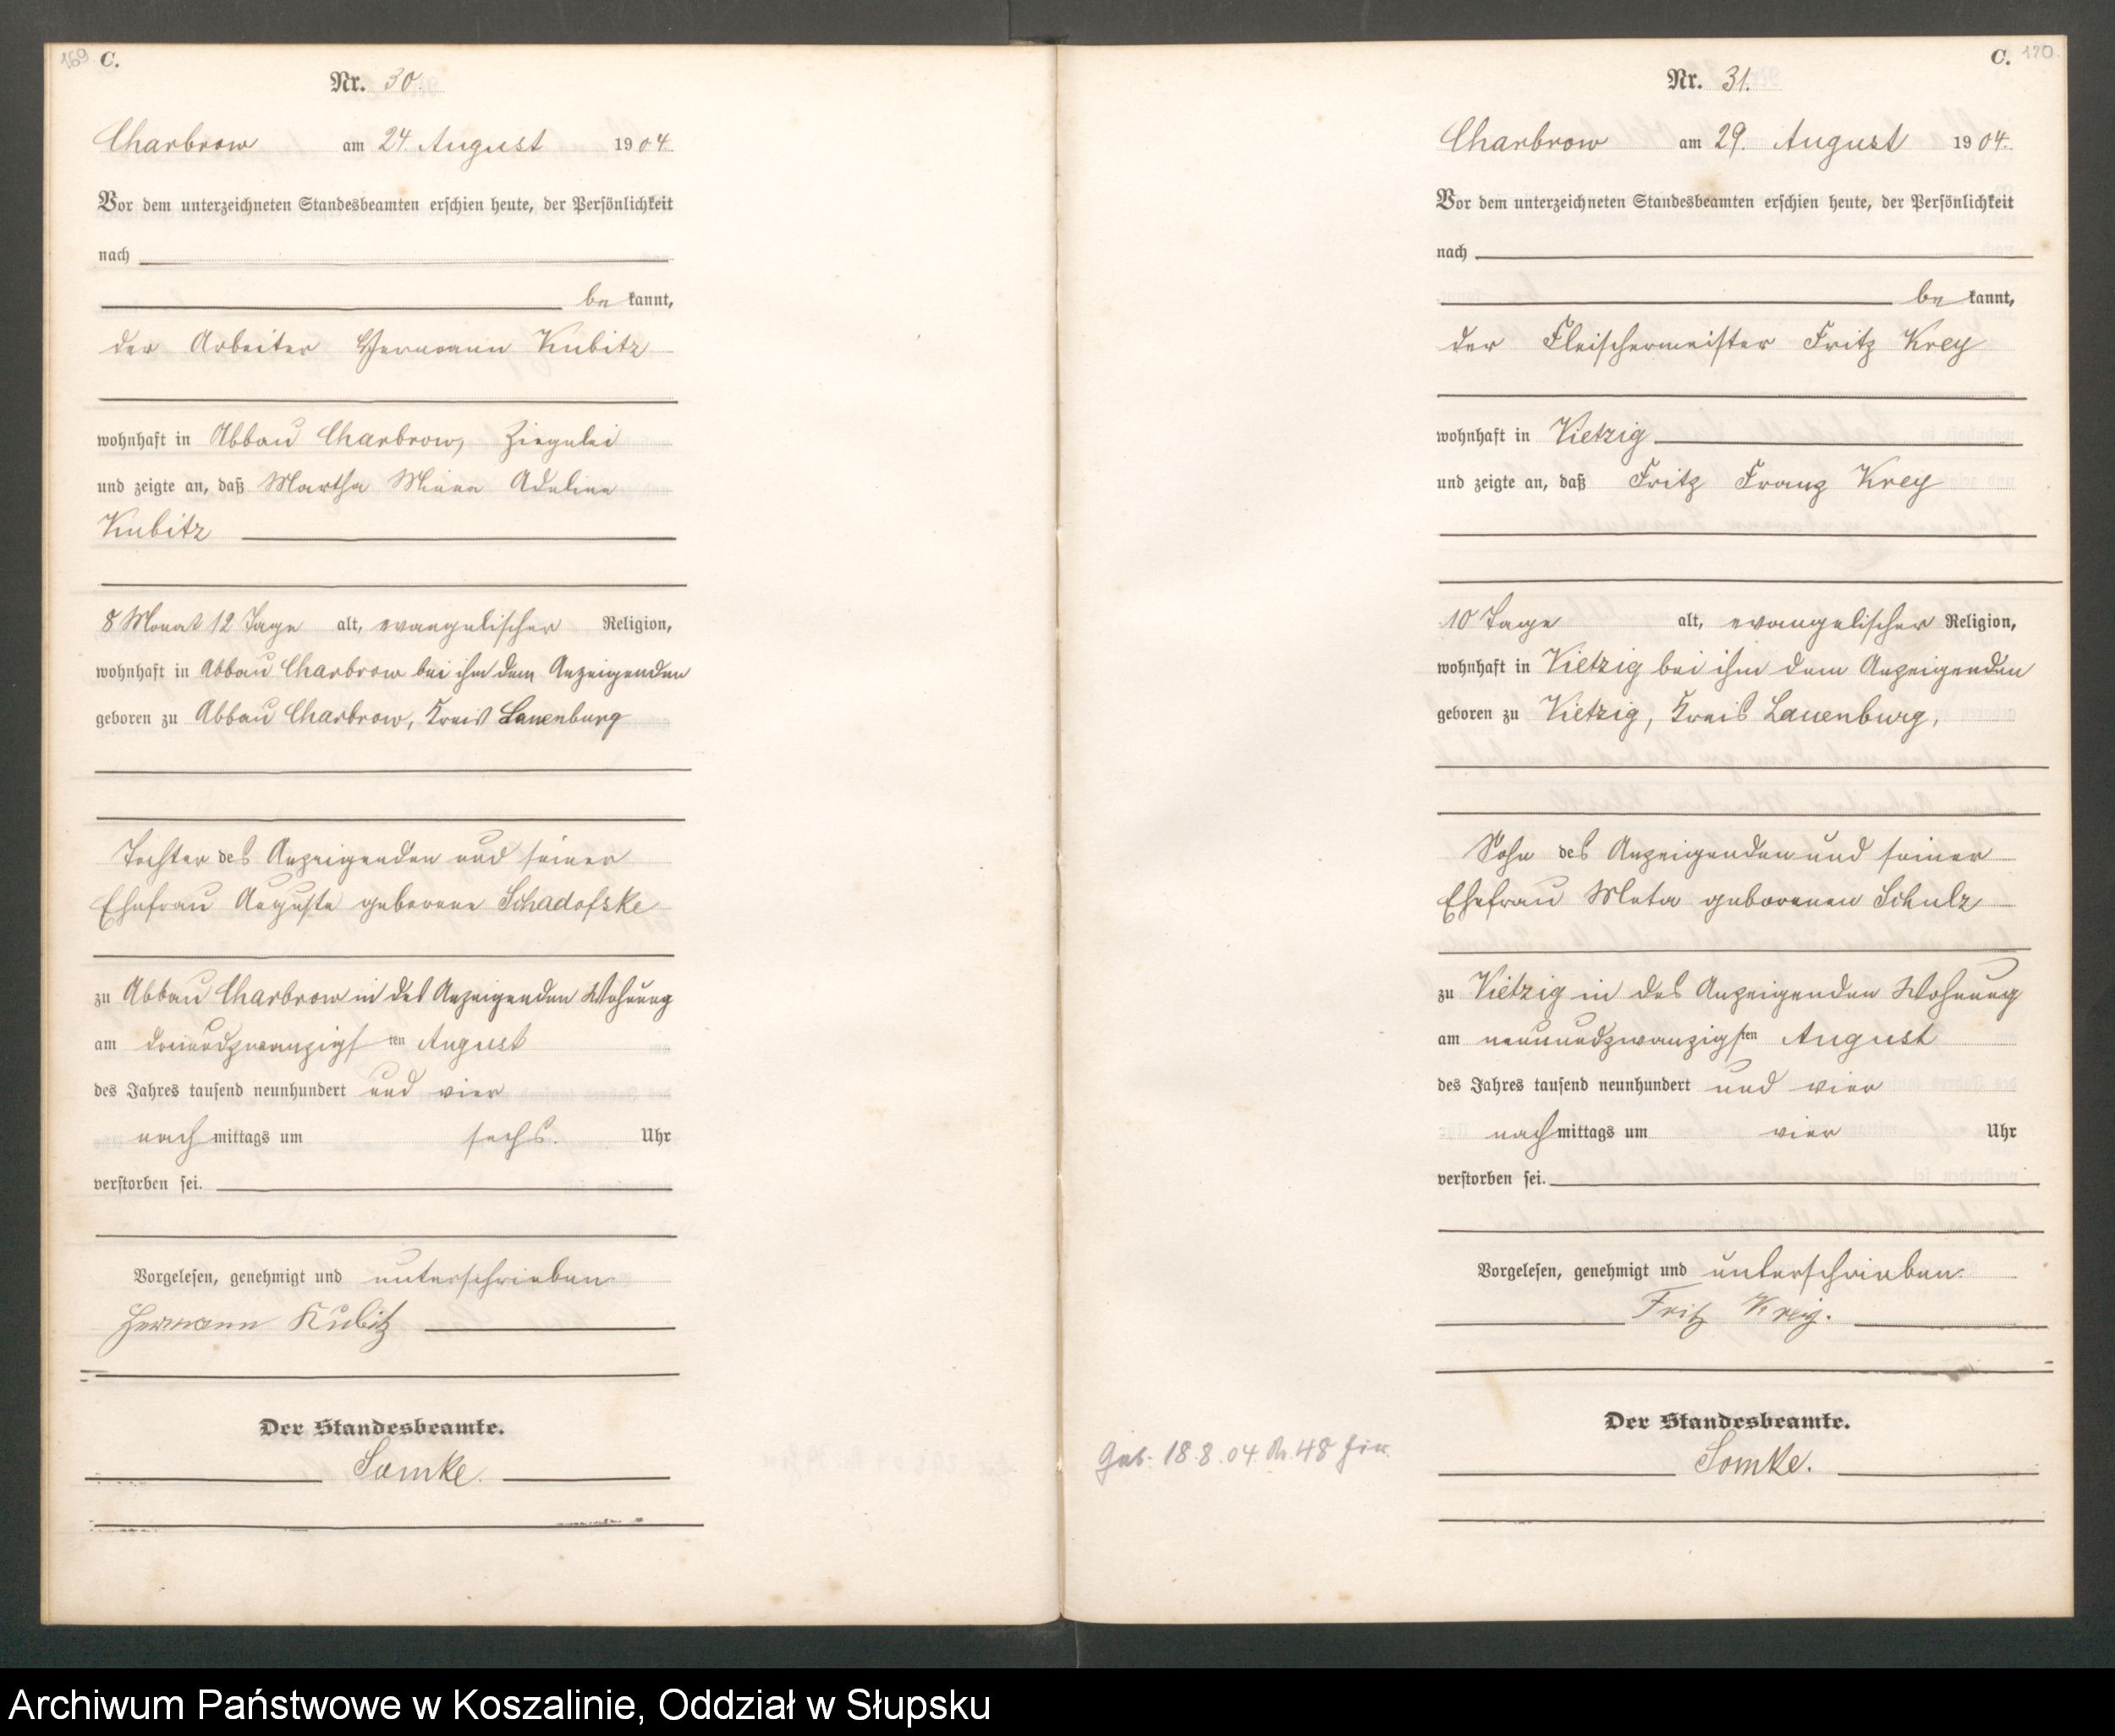 169 C.
Nr. 30.
Charbrow am 24. August 1904.
Vor dem unterzeichneten Standesbeamten erschien heute, der Persönlichkeit
nach
be kannt,
der Arbeiter Hermann Kubitz
wohnhaft in Abbau Charbrow, Ziegelei
und zeigte an, daß Martha Minna Adeline
Kubitz
8 Monat 12 Tage alt, evangelischer Religion,
wohnhaft in Abbau Charbrow bei ihm dem Anzeigenden
geboren zu Abbau Charbrow, Kreis Lauenburg
Tochter des Anzeigenden und seiner
Ehefrau Auguste geborene Schadofske
zu Abbau Charbrow in des Anzeigenden Wohnung
am dreiundzwanzigsten August
des Jahres tausend neunhundert und vier
nach mittags um sechs. Uhr
verstorben sei.
Vorgelesen, genehmigt und unterschrieben
Hermann Kubitz
Der Standesbeamte.
Somke.
C. 170
Nr. 31.
Charbrow am 29. August 1904.
Vor dem unterzeichneten Standesbeamten erschien heute, der Persönlichkeit
nach
be kannt,
der Fleischermeister Fritz Krey
wohnhaft in Vietzig
und zeigte an, daß Fritz Franz Krey
10 Tage alt, evangelischer Religion,
wohnhaft in Vietzig bei ihm dem Anzeigenden
geboren zu Vietzig, Kreis Lauenburg,
Sohn des Anzeigenden und seiner
Ehefrau Meta geborenen Schulz
zu Vietzig in des Anzeigenden Wohnung
am neunundzwanzigsten August
des Jahres tausend neunhundert und vier
nach mittags um vier Uhr
verstorben sei.
Vorgelesen, genehmigt und unterschrieben.
Fritz Krey.
Der Standesbeamte.
Somke.
Geb. 18.8.04. Nr. 48 hier.
Archiwum Państwowe w Koszalinie, Oddział w Słupsku